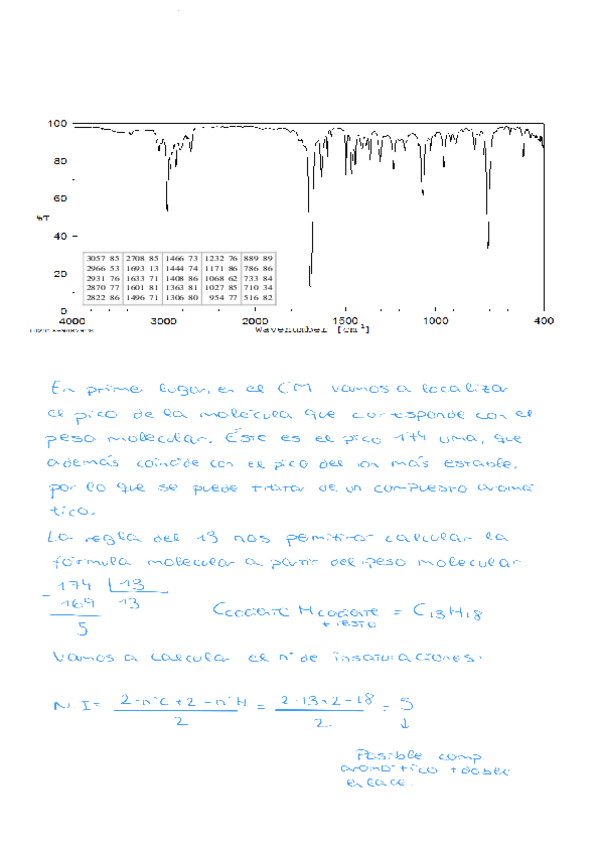 100
80
60
%T
40
20
0
4000 3000 2000 1500 1000 400
Wavenumber [cm-1]
3057 85 2708 85 1466 73 1232 76 889 89
2966 53 1693 13 1444 74 1171 86 786 86
2931 76 1633 71 1408 86 1068 62 733 84
2870 77 1601 81 1363 81 1027 85 710 34
2822 86 1496 71 1306 80 954 77 516 82
En primer lugar, en el CM vamos a localizar
el pico de la molécula que corresponde con el
peso molecular. Éste es el pico 174 uma, que
además coincide con el pico del ion más estable,
por lo que se puede tratar de un compuesto aromá
tico.
La regla del 13 nos permitirá calcular la
fórmula molecular a partir del peso molecular
- 174 | 13
169 13
5
Ccociente Hcociente + resto = C13H18
Vamos a calcular el nº de insaturaciones:
N I = 2·nºC+2-nºH / 2 = 2·13+2-18 / 2 = 5
↓
Posible comp.
aromático + doble
enlace.